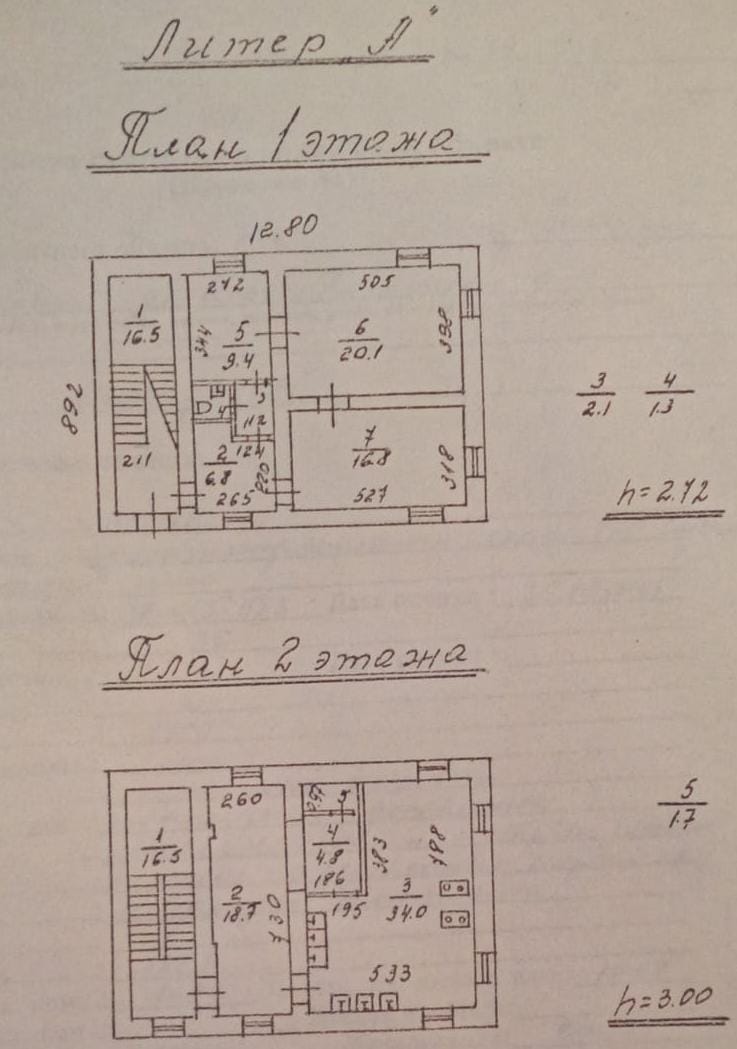 Литер „А"
План 1 этажа
12.80
272
505
1
16.5
344
5
9.4
6
20.1
398
3
2.1
4
1.3
892
3
4
112
211
2
6.8
124
220
265
7
16.8
318
527
h=2.72
План 2 этажа
260
3
5
1.7
1
16.5
4
4.8
383
788
186
2
18.7
730
195
3
34.0
533
h=3.00